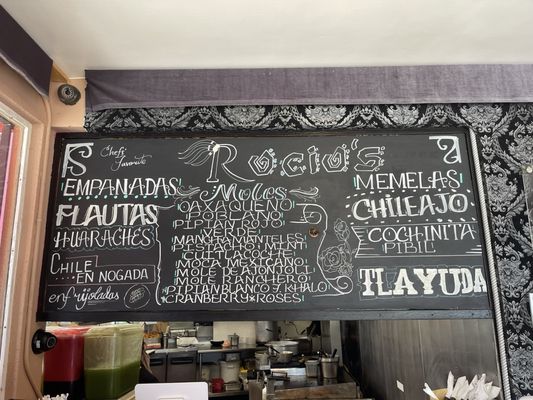 Chefs
Favorite
EMPANADAS
FLAUTAS
HUARACHES
CHILE
EN NOGADA
enfrijoladas
Rocio's
Moles
OAXAQUEÑO
POBLANO
PIPIAN ROJO
VERDE
MANCHAMANTELES
CUITLACOCHE
MOCA MEXICANO
MOLE DE AJONJOLI
MOLE RANCHERO
PIPIAN BLANCO Y XHALO
CRANBERRY & ROSES
MEMELAS
CHILEAJO
COCHINITA
PIBIL
TLAYUDA